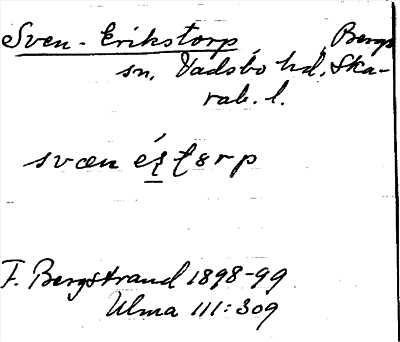 Sven-Erikstorp, Bergs
sn, Vadsbo hd, Ska-
rab. l.
svæn
F. Bergstrand 1898-99
Ulma 111:309